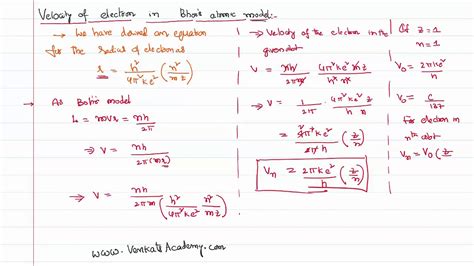 Velocity of electron in Bhor's atomic model:
→ We have derived an equation
for the radius of electron as
r = h²/4π²ke² (n²/mz)
→ As Bohr's model
L = mvr = nh/2π
⇒ V = nh/2π(mr)
⇒ V = nh/2πm (h²/4π²ke² n²/mz)
→ Velocity of the electron in the
given orbit
V = nh/2πm × 4π²ke² mz/h² n²
⇒ V = 1/2π · 4π²ke²/h² z/n
= 2πke²/h (z/n)
Vn = 2πke²/h (z/n)
If z=1
n=1
V₀ = 2πke²/h
V₀ = c/137
for electron in
nth orbit
Vn = V₀ (z/
www.VenkatsAcademy.com